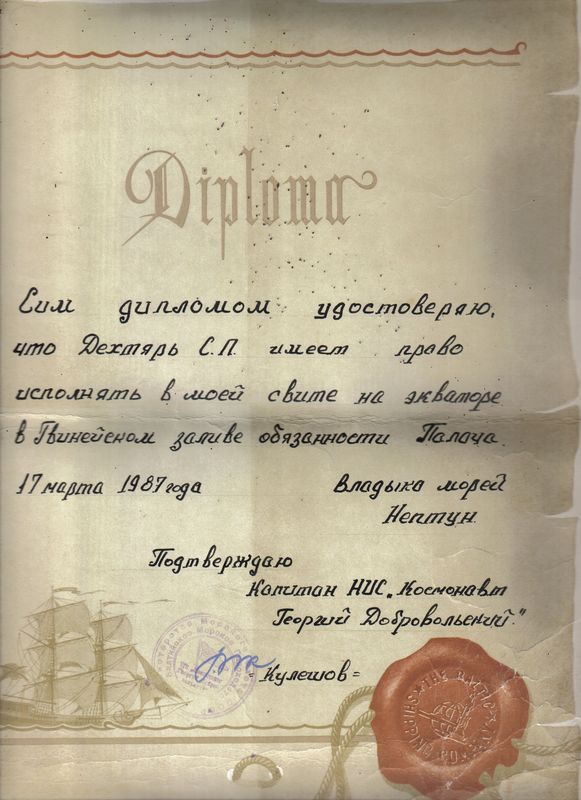 Diploma
Сим дипломом удостоверяю,
что Дехтярь С.П. имеет право
исполнять в моей свите на экваторе
в Гвинейском заливе обязанности Палача
17 марта 1987 года
Владыка морей
Нептун.
Подтверждаю
Капитан НИС „Космонавт
Георгий Добровольский."
Кулешов =
THE BALTIC SHIPPING COMPANY